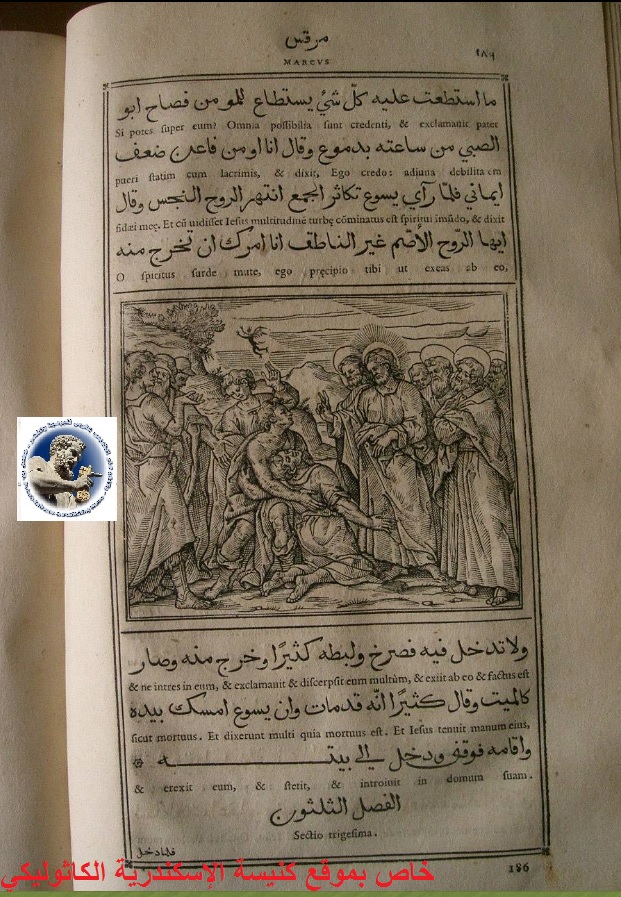 مرقس
١٨٦
MARCVS
ما استطعت عليه كلّ شيْ يستطاع للمومن فصاح ابو
Si potes super eum? Omnia possibilia sunt credenti, & exclamauit pater
الصبي من ساعته بدموع وقال انا اومن فاعن ضعف
pueri statim cum lacrimis, & dixit, Ego credo: adiuua debilitatem
ايماني فلمّا رآي يسوع تكاثر الجمع انتهر الروح النجس وقال
fidæi meę. Et cū uidisset Iesus multitudinē turbę cōminatus est spiritui imūdo, & dixit
ايها الرّوح الأصّم غير الناطق انا امرك ان تخرج منه
O spiritus surde mute, ego pręcipio tibi ut exeas ab eo,
ولا تدخل فيه فصرخ ولبطه كثيرًا وخرج منه وصار
& ne intres in eum, & exclamauit & discerpsit eum multùm, & exiit ab eo & factus est
كالميت وقال كثيرًا انّه قد مات وان يسوع امسك بيده
sicut mortuus. Et dixerunt multi quia mortuus est. Et Iesus tenuit manum eius,
واقامه فوقف ودخل الي بيته
& erexit eum, & stetit, & introiuit in domum suam.
الفصل الثلثون
Sectio trigesima.
فلما دخل
186
خاص بموقع كنيسة الإسكندرية الكاثوليكي